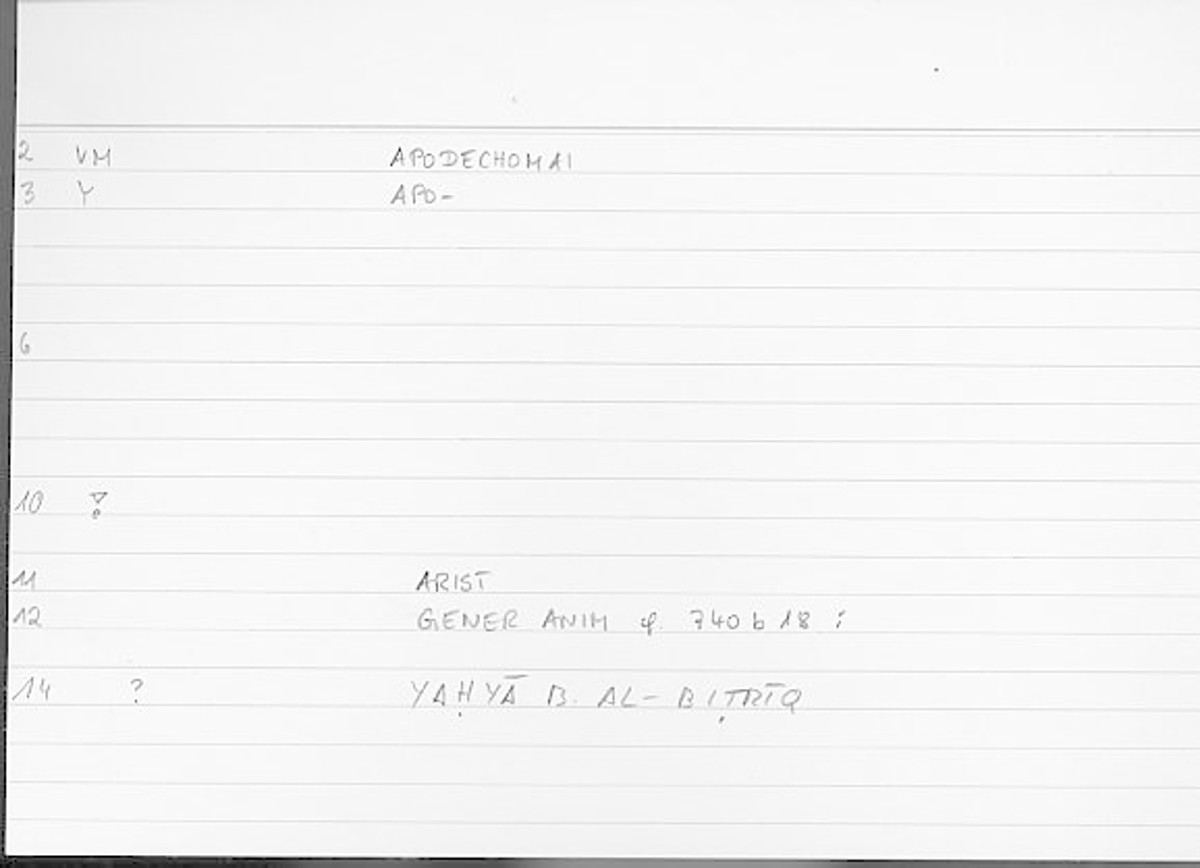 2 VM APODECHOMAI
3 Y APO-
6
10
11 ARIST
12 GENER ANIM φ. 740 b 18 :
14 ? YAḤYĀ B. AL-BIṬRĪQ